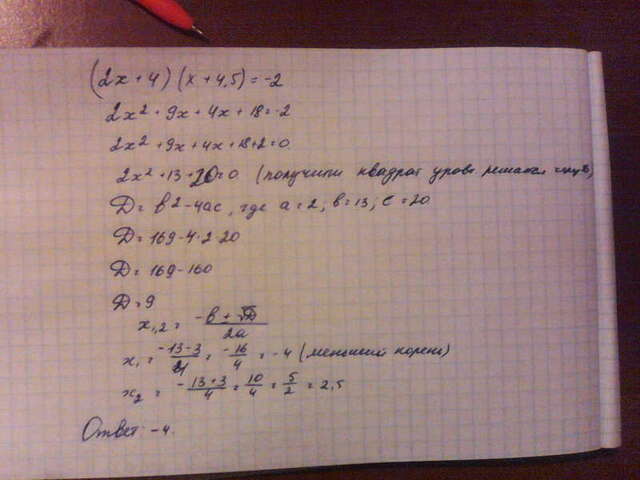 (2x + 4) (x + 4,5) = -2
2x² + 9x + 4x + 18 = -2
2x² + 9x + 4x + 18 + 2 = 0
2x² + 13 + 20 = 0 (получили квадрат уравн решаем
D = b² - 4ac, где a = 2; b = 13; c = 20
D = 169 - 4 · 2 · 20
D = 169 - 160
D = 9
x₁,₂ = (-b ± √D) / 2a
x₁ = (-13 - 3) / 4 = -16/4 = -4 (меньший корень)
x₂ = -(13 + 3) / 4 = 10/4 = 5/2 = 2,5
Ответ -4.